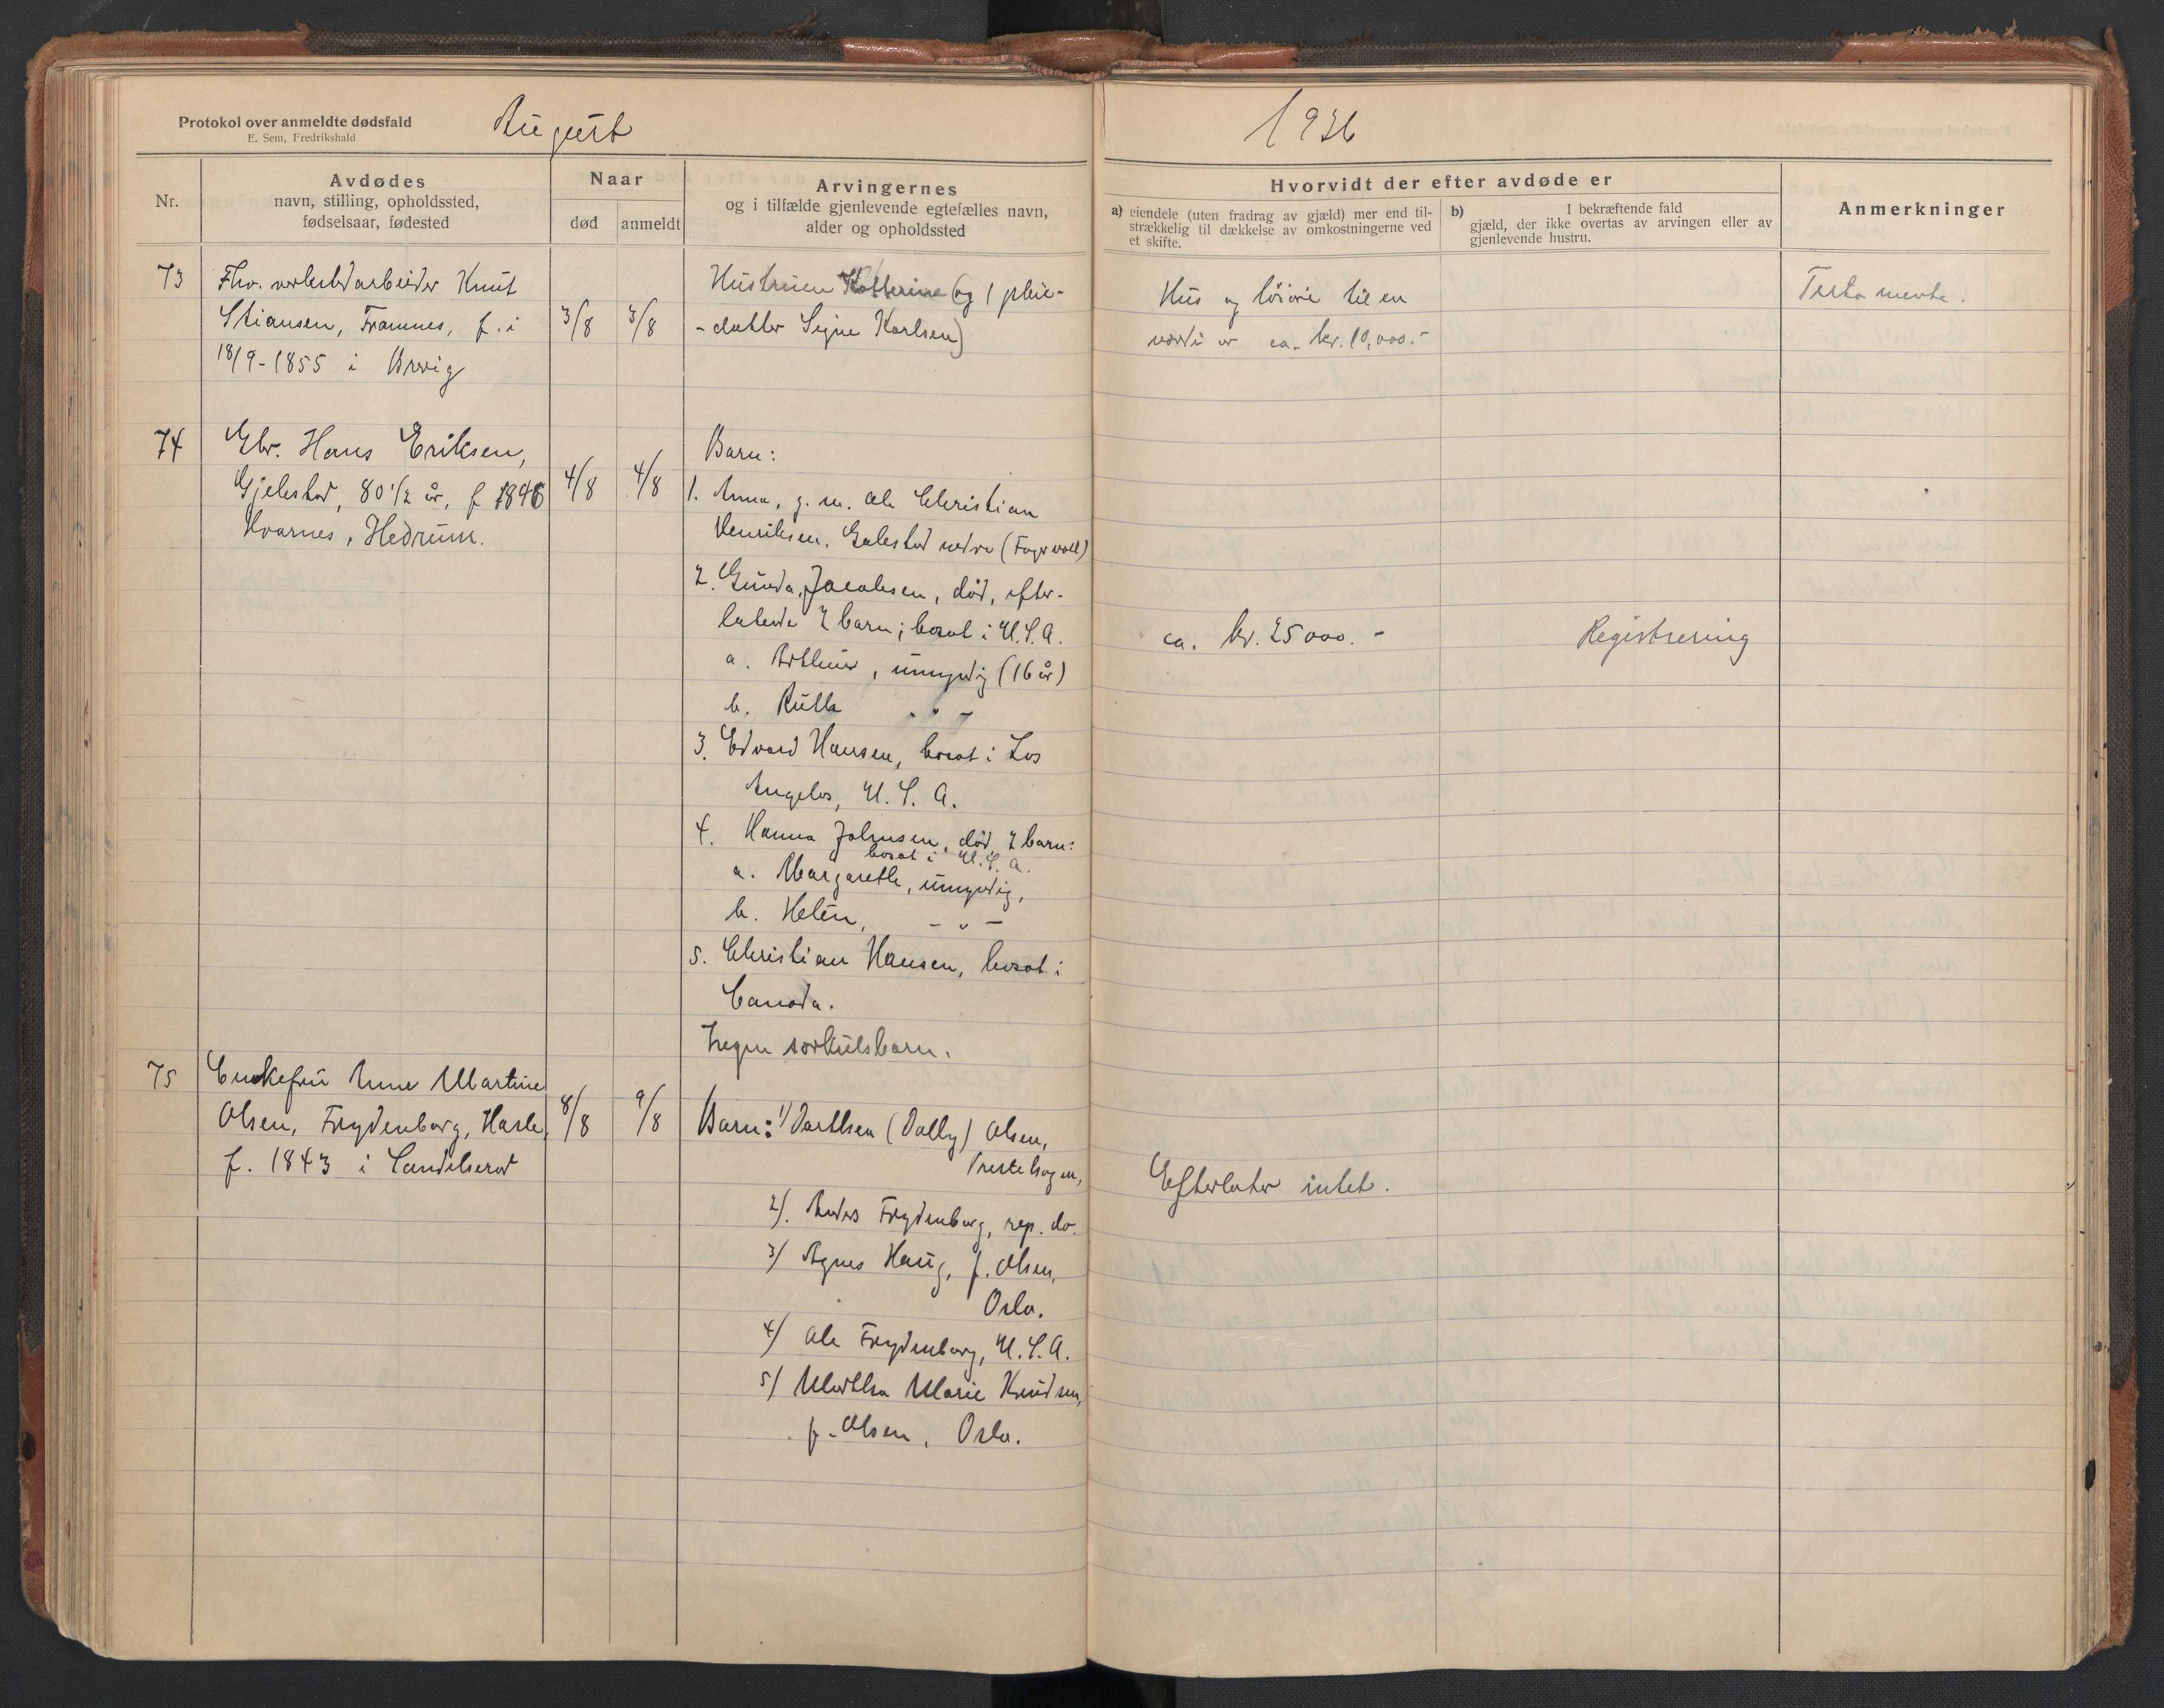 Protokol over anmeldte dødsfald
E. Sem, Fredrikshald
August
1936
Nr.
Avdødes
navn, stilling, opholdssted,
fødselsaar, fødested
Naar
død
anmeldt
Arvingernes
og i tilfælde gjenlevende egtefælles navn,
alder og opholdssted
Hvorvidt der efter avdøde er
a) eiendele (uten fradrag av gjæld) mer end til-
strækkelig til dækkelse av omkostningerne ved
et skifte.
b) I bekræftende fald
gjæld, der ikke overtas av arvingen eller av
gjenlevende hustru.
Anmerkninger
73
Fhv. verkstedarbeider Knut
Stiansen, Framnes, f. i
18/9-1855 i Brevig
3/8
3/8
Hustruen Katherine (og 1 pleie-
-datter Signe Karlsen)
Hus og løsøre til en
verdi av ca. kr. 10,000.-
Testamente.
74
Gbr. Hans Eriksen,
Gjelestad, 80 1/2 år, f 1846
Kvarnes, Hedrum.
4/8
4/8
Barn:
1. Anna, g. m. Ole Christian
Henriksen, Gjelestad nedre (Fagervoll)
2. Gunda Jacobsen, død, efter-
latende 2 barn; bosat i U.S.A.
a. Arthur, umyndig (16 år)
b. Ruth - " -
3. Edvard Hansen, bosat i Los
Angelos, U. S. A.
4. Hanna Johnsen, død, 2 barn:
bosat i U.S.A.
a. Margareth, umyndig,
b. Helén, - " -
5. Christian Hansen, bosat i
Canada.
Ingen særkulsbarn.
ca. kr. 25000.-
Registrering
75
Enkefru Anne Martine
Olsen, Frydenborg, Hasle,
f. 1843 i Sandeherred
8/8
9/8
Barn: 1/ Dorthea (Dolly) Olsen,
Prestehagen,
2/. Anders Frydenborg, rep. do.
3/ Agnes Haug, f. Olsen,
Oslo.
4/ Ole Frydenborg, U.S.A.
5/ Martha Marie Knudsen,
f. Olsen, Oslo.
Efterlater intet.